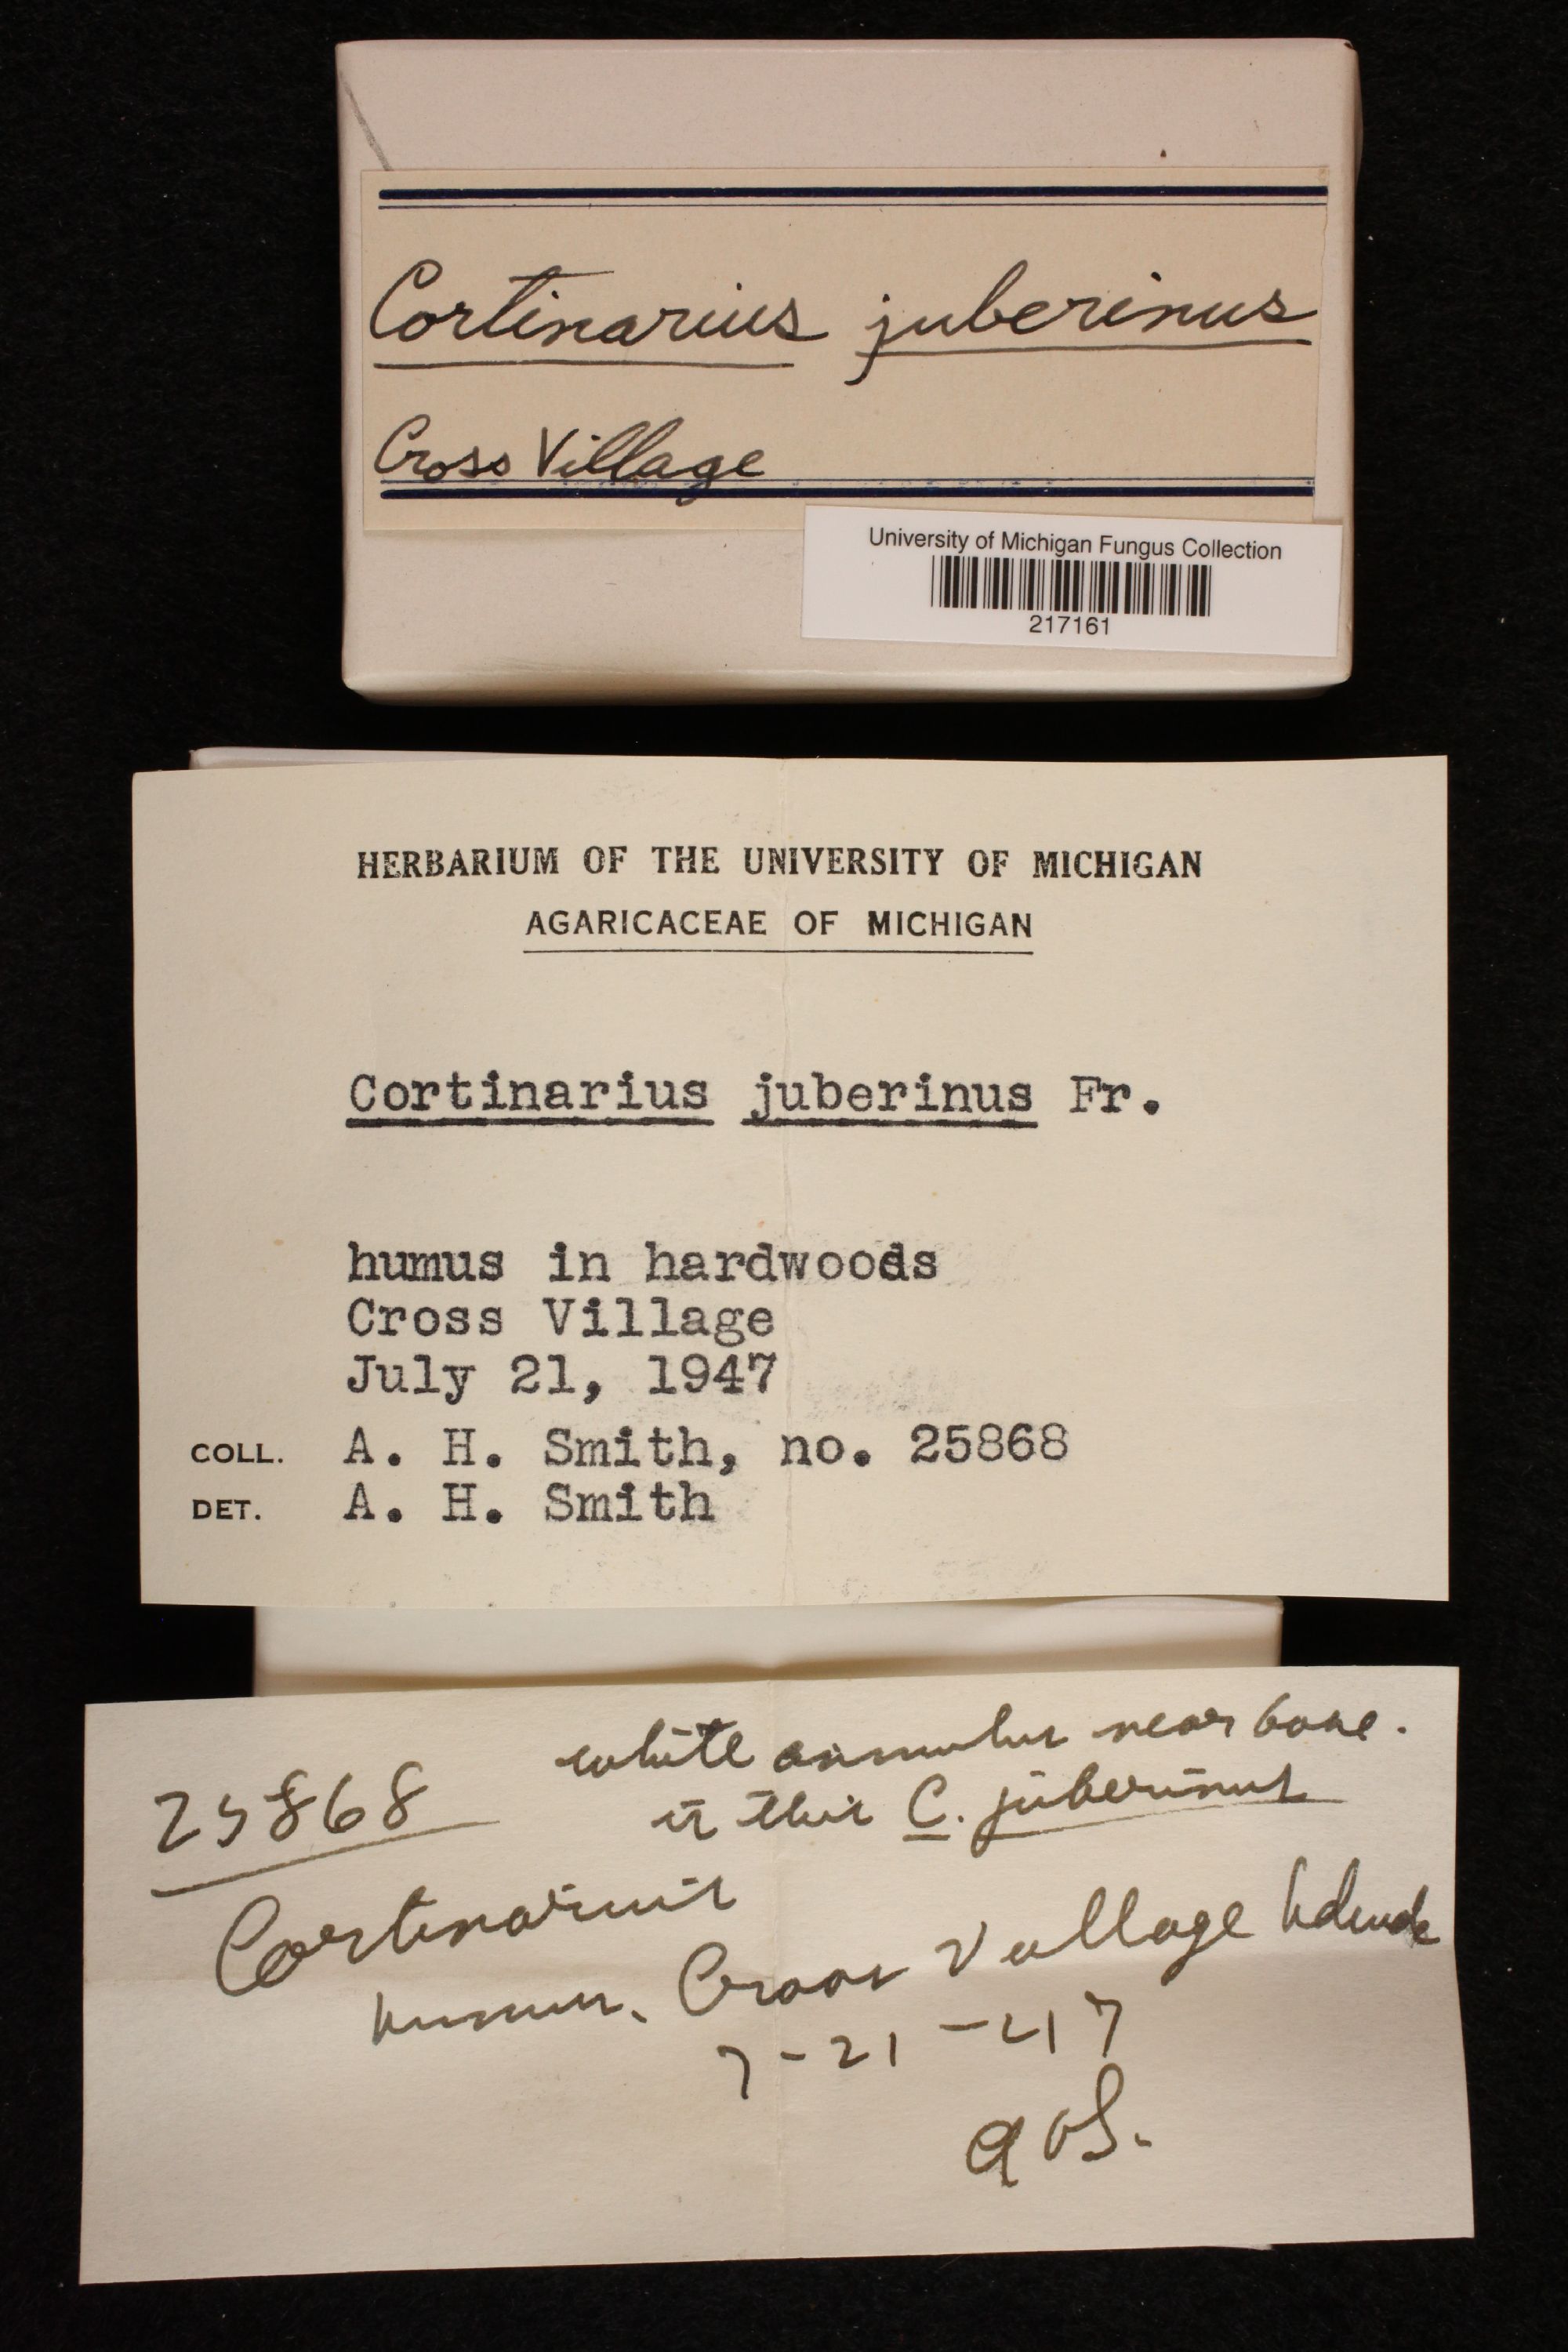 Cortinarius juberinus
Cross Village
University of Michigan Fungus Collection
217161
HERBARIUM OF THE UNIVERSITY OF MICHIGAN
AGARICACEAE OF MICHIGAN
Cortinarius juberinus Fr.
humus in hardwoods
Cross Village
July 21, 1947
COLL. A. H. Smith, no. 25868
DET. A. H. Smith
white annulus near base.
25868
is this C. juberinus
Cortinarius
humus, Cross Village
7-21-47